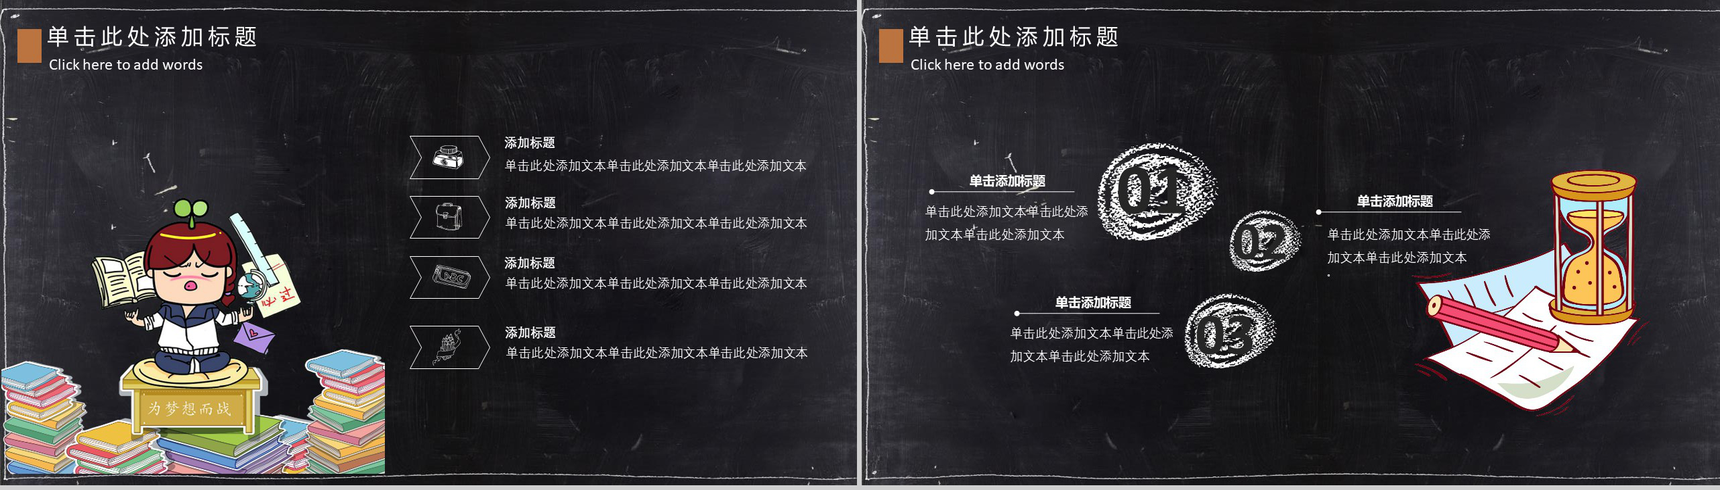 单击此处添加标题
Click here to add words
添加标题
单击此处添加文本单击此处添加文本单击此处添加文本
添加标题
单击此处添加文本单击此处添加文本单击此处添加文本
添加标题
单击此处添加文本单击此处添加文本单击此处添加文本
添加标题
单击此处添加文本单击此处添加文本单击此处添加文本
必过
为梦想而战
单击此处添加标题
Click here to add words
01
单击添加标题
单击此处添加文本单击此处添
加文本单击此处添加文本
02
单击添加标题
单击此处添加文本单击此处添
加文本单击此处添加文本
.
03
单击添加标题
单击此处添加文本单击此处添
加文本单击此处添加文本